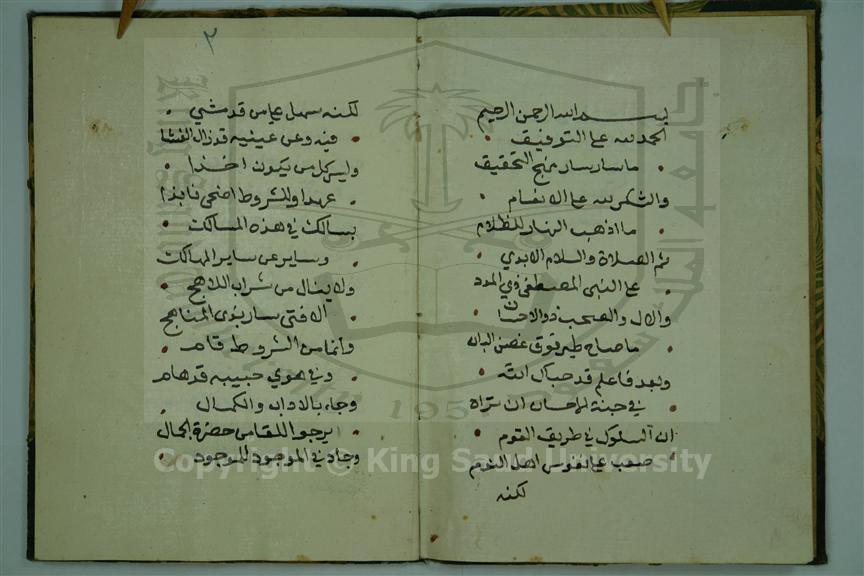 بسم الله الرحمن الرحيم
الحمد لله على التوفيق
ما سار سار منهج التحقيق
والشكر لله على الانعام
ما اذهب النهار للظلام
ثم الصلاة والسلام الابدي
على النبي المصطفى ذي المدد
والال والصحب ذوو الاحسان
ما صاح طير فوق غصن البان
وبعد فاعلم قد حباك الله
في جنة الاحسان ان تراه
ان السلوك في طريق القوم
صعب على نفوس اهل النوم
لكنه
٢
لكنه سهل على من قد مشي
فيه وعن عينيه قد زال الغشا
وليس كل من يكون اخذا
عهدا وللشروط اضحى نابذا
بسالك في هذه المسالك
وساير عن ساير المهالك
ولا ينال من شراب اللاهج
الا فتى سار بذي المناهج
وانما من الشروط قام
وفي هوي حبيبه قد هام
وجاء بالاداب والكمال
يرجوا اللقا من حضرة الجمال
وجاد في الموجود للموجود
Copyright © King Saud University
جامعة الملك سعود
195